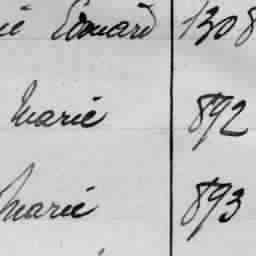 Edouard 1308
Marie 892
Marie 893